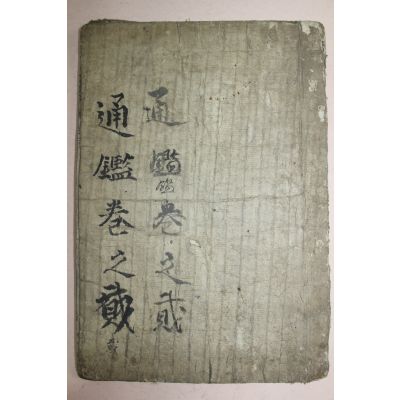 通鑑卷之貳
通鑑卷之貳